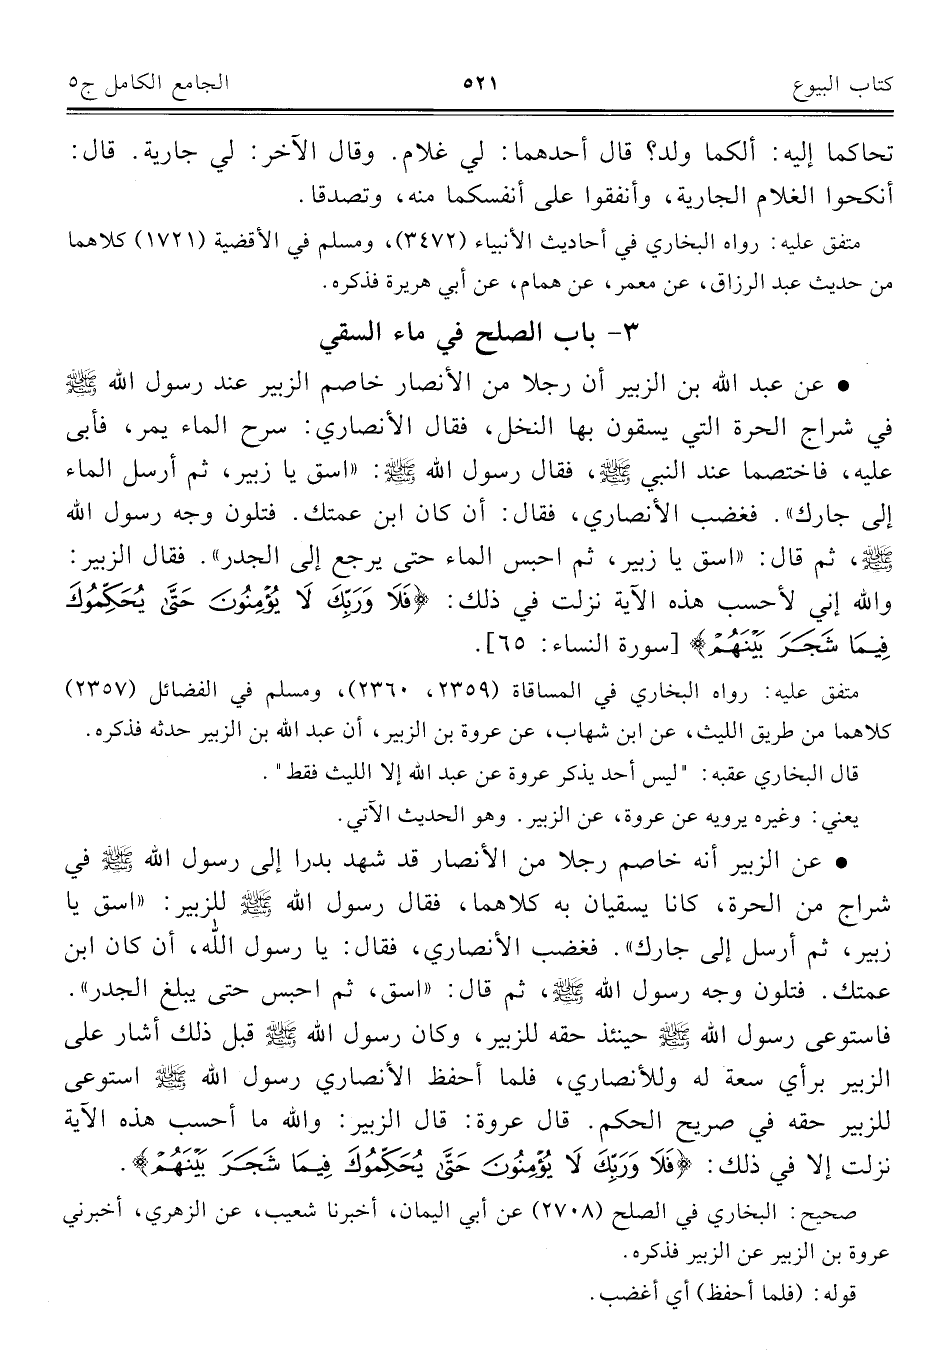 كتاب البيوع ٥٢١ الجامع الكامل ج٥
تحاكما إليه: ألكما ولد؟ قال أحدهما: لي غلام. وقال الآخر: لي جارية. قال:
أنكحوا الغلام الجارية، وأنفقوا على أنفسكما منه، وتصدقا.
متفق عليه: رواه البخاري في أحاديث الأنبياء (٣٤٧٢)، ومسلم في الأقضية (١٧٢١) كلاهما
من حديث عبد الرزاق، عن معمر، عن همام، عن أبي هريرة فذكره.
٣- باب الصلح في ماء السقي
• عن عبد الله بن الزبير أن رجلا من الأنصار خاصم الزبير عند رسول الله ﷺ
في شراج الحرة التي يسقون بها النخل، فقال الأنصاري: سرح الماء يمر، فأبى
عليه، فاختصما عند النبي ﷺ، فقال رسول الله ﷺ: «اسق يا زبير، ثم أرسل الماء
إلى جارك». فغضب الأنصاري، فقال: أن كان ابن عمتك. فتلون وجه رسول الله
ﷺ، ثم قال: «اسق يا زبير، ثم احبس الماء حتى يرجع إلى الجدر». فقال الزبير:
والله إني لأحسب هذه الآية نزلت في ذلك: ﴿فَلَا وَرَبِّكَ لَا يُؤْمِنُونَ حَتَّىٰ يُحَكِّمُوكَ
فِيمَا شَجَرَ بَيْنَهُمْ﴾ [سورة النساء: ٦٥].
متفق عليه: رواه البخاري في المساقاة (٢٣٥٩، ٢٣٦٠)، ومسلم في الفضائل (٢٣٥٧)
كلاهما من طريق الليث، عن ابن شهاب، عن عروة بن الزبير، أن عبد الله بن الزبير حدثه فذكره.
قال البخاري عقبه: "ليس أحد يذكر عروة عن عبد الله إلا الليث فقط".
يعني: وغيره يرويه عن عروة، عن الزبير. وهو الحديث الآتي.
• عن الزبير أنه خاصم رجلا من الأنصار قد شهد بدرا إلى رسول الله ﷺ في
شراج من الحرة، كانا يسقيان به كلاهما، فقال رسول الله ﷺ للزبير: «اسق يا
زبير، ثم أرسل إلى جارك». فغضب الأنصاري، فقال: يا رسول الله، أن كان ابن
عمتك. فتلون وجه رسول الله ﷺ، ثم قال: «اسق، ثم احبس حتى يبلغ الجدر».
فاستوعى رسول الله ﷺ حينئذ حقه للزبير، وكان رسول الله ﷺ قبل ذلك أشار على
الزبير برأي سعة له وللأنصاري، فلما أحفظ الأنصاري رسول الله ﷺ استوعى
للزبير حقه في صريح الحكم. قال عروة: قال الزبير: والله ما أحسب هذه الآية
نزلت إلا في ذلك: ﴿فَلَا وَرَبِّكَ لَا يُؤْمِنُونَ حَتَّىٰ يُحَكِّمُوكَ فِيمَا شَجَرَ بَيْنَهُمْ﴾.
صحيح: البخاري في الصلح (٢٧٠٨) عن أبي اليمان، أخبرنا شعيب، عن الزهري، أخبرني
عروة بن الزبير عن الزبير فذكره.
قوله: (فلما أحفظ) أي أغضب.